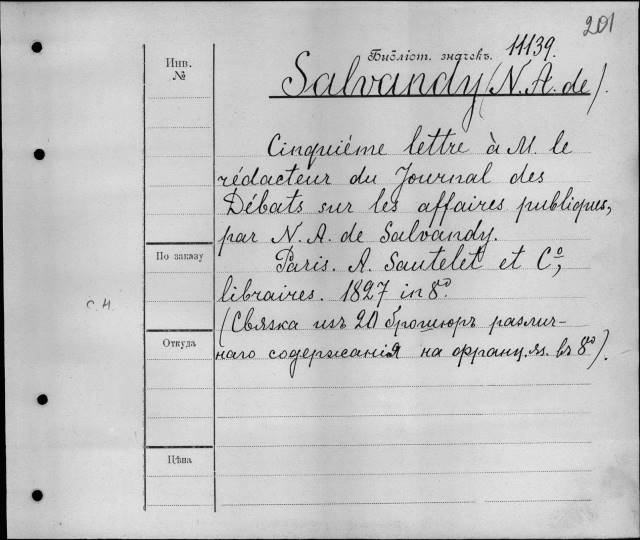 201
Инв.
№
Библіот. значекъ. 11139.
Salvandy (N. A. de).
Cinquiéme lettre à M. le
rédacteur du Journal des
Débats sur les affaires publiques,
par N. A. de Salvandy.
По заказу
Paris. A. Sautelet et Cº,
libraires. 1827 in 8º.
с. н.
(Связка изъ 20 брошюръ различ-
Откуда
наго содержанія на франц. яз. въ 8º).
Цѣна